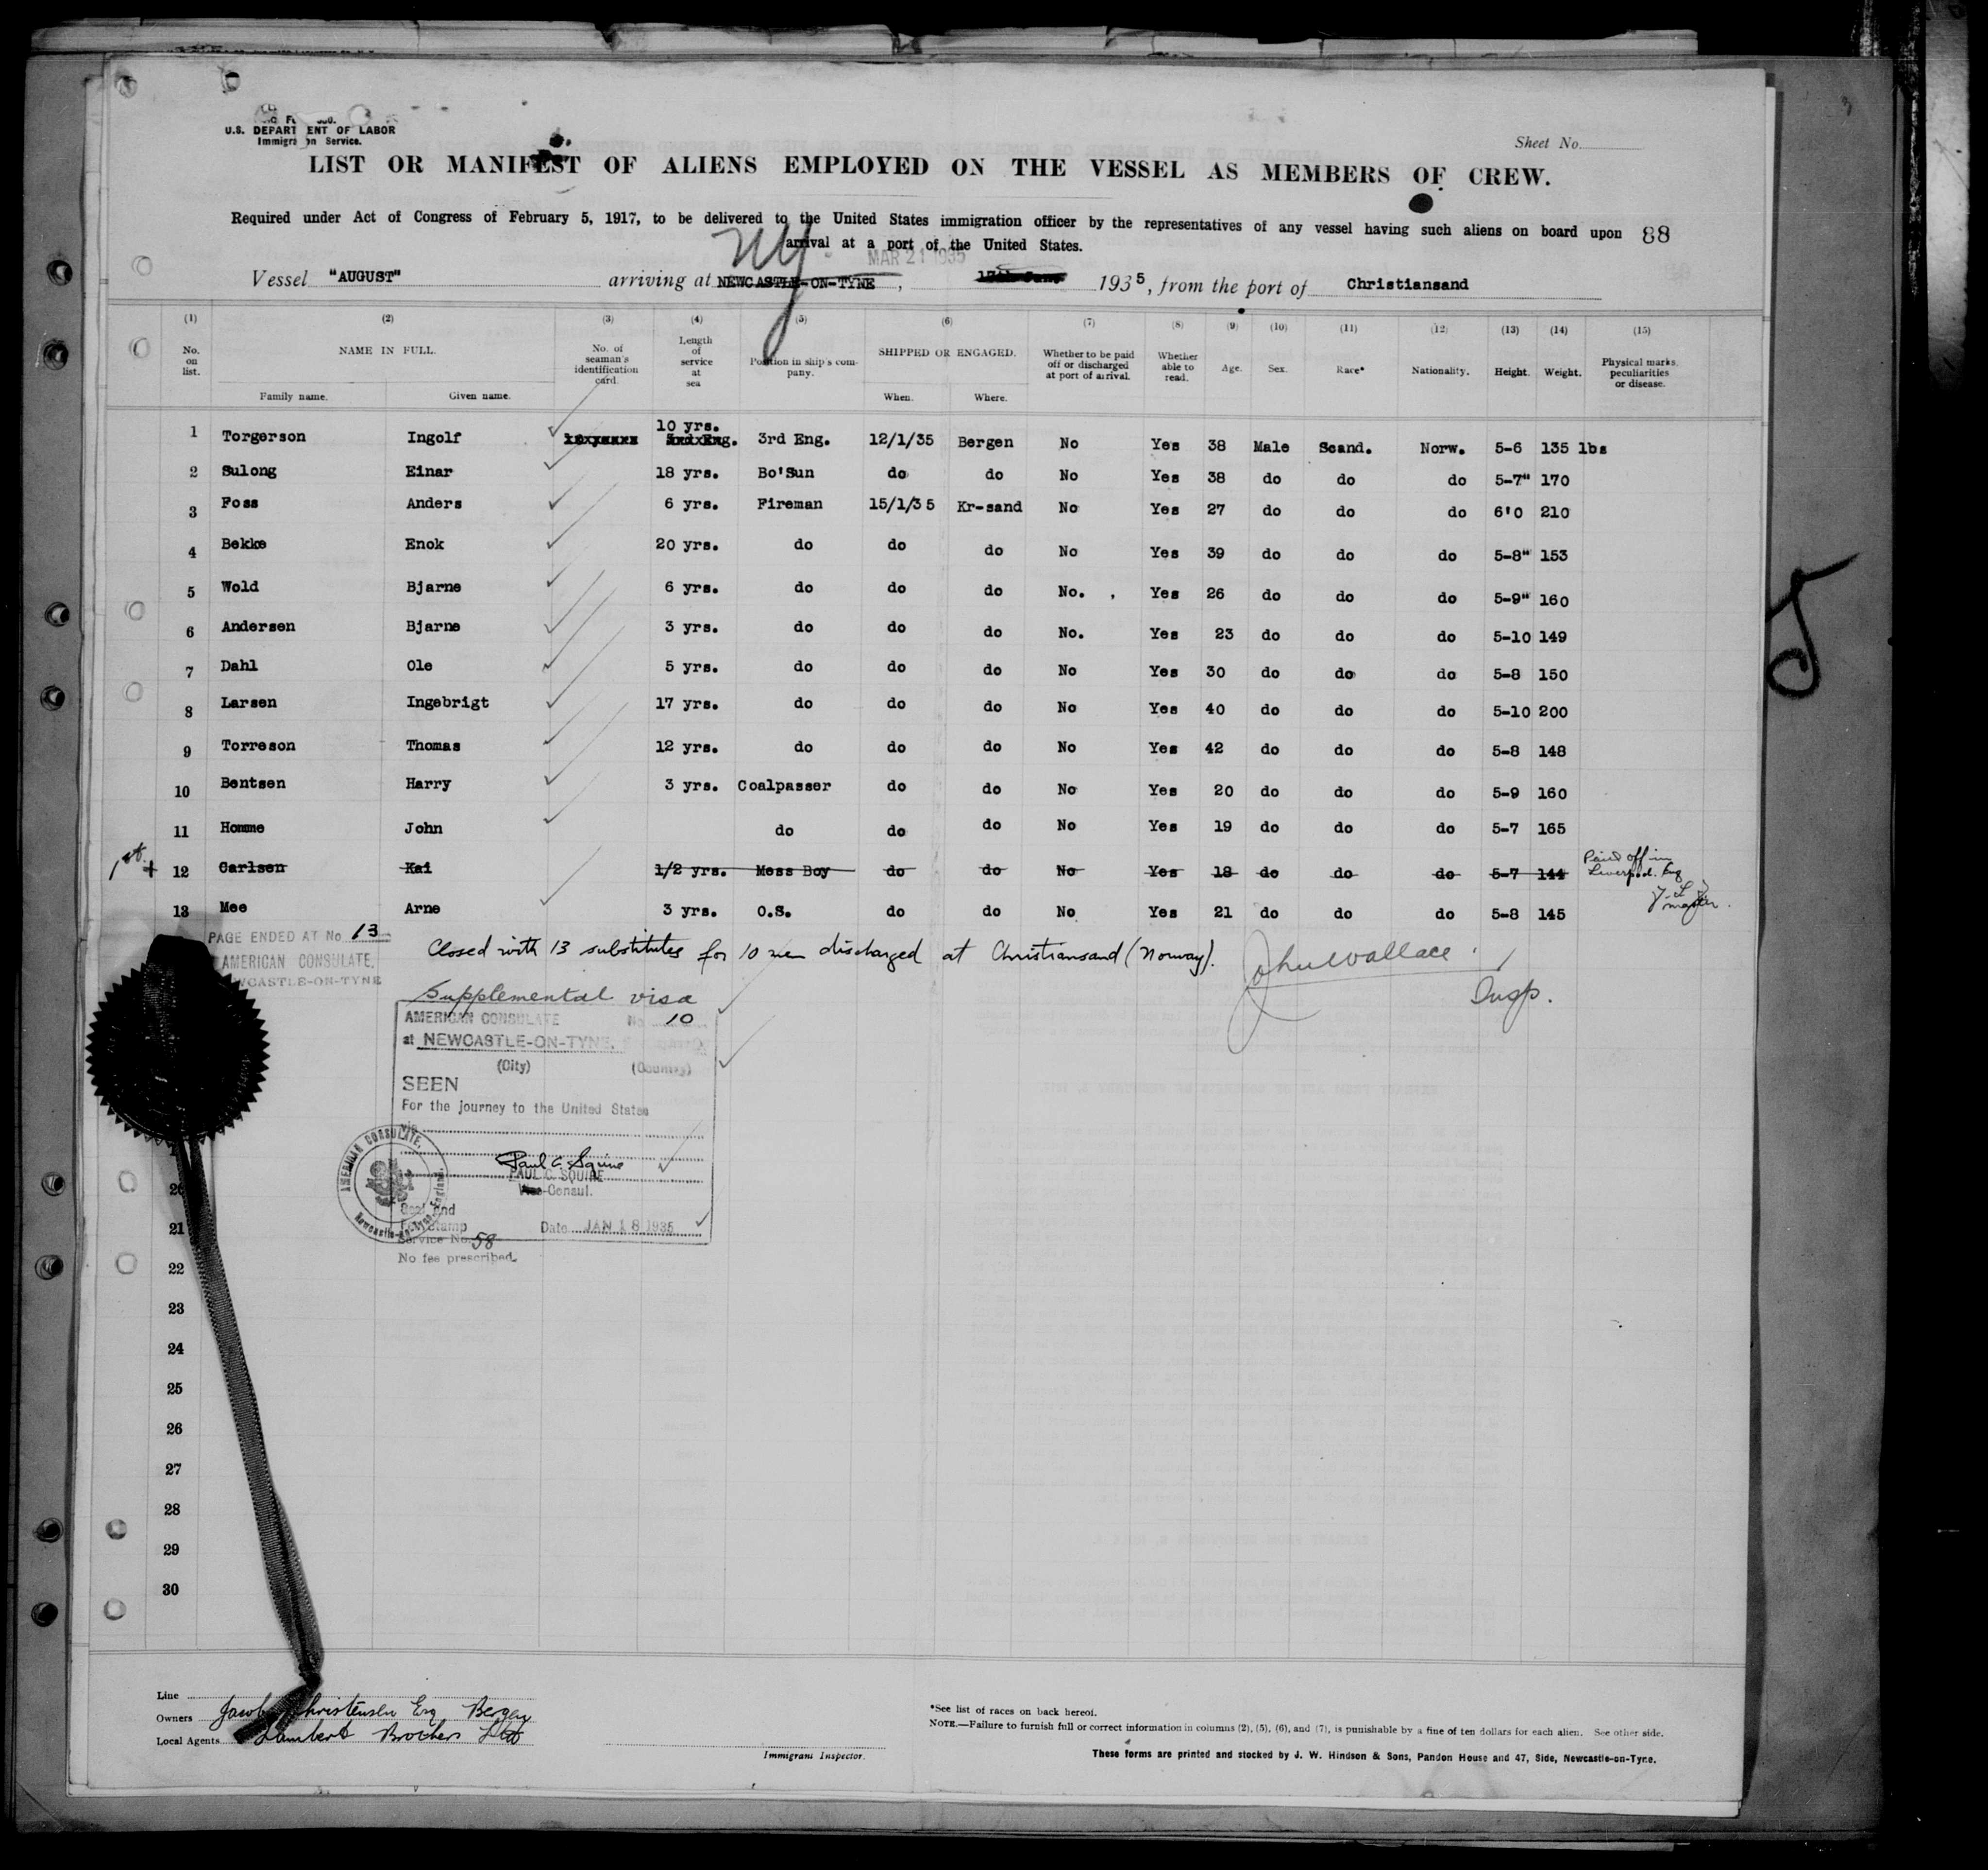 U.S. DEPARTMENT OF LABOR
Immigration Service.
Sheet No.
LIST OR MANIFEST OF ALIENS EMPLOYED ON THE VESSEL AS MEMBERS OF CREW.
Required under Act of Congress of February 5, 1917, to be delivered to the United States immigration officer by the representatives of any vessel having such aliens on board upon 88
arrival at a port of the United States.
NY
MAR 21 1935
Vessel "AUGUST" arriving at NEWCASTLE-ON-TYNE, 1935, from the port of Christiansand
(1) (2) (3) (4) (5) (6) (7) (8) (9) (10) (11) (12) (13) (14) (15)
No. on list. NAME IN FULL. Family name. Given name. No. of seaman's identification card. Length of service at sea Position in ship's company. SHIPPED OR ENGAGED. When. Where. Whether to be paid off or discharged at port of arrival. Whether able to read. Age. Sex. Race* Nationality. Height. Weight. Physical marks, peculiarities or disease.
1 Torgerson Ingolf 10 yrs. 3rd Eng. 12/1/35 Bergen No Yes 38 Male Scand. Norw. 5-6 135 lbs
2 Sulong Einar 18 yrs. Bo'Sun do do No Yes 38 do do do 5-7" 170
3 Foss Anders 6 yrs. Fireman 15/1/35 Kr-sand No Yes 27 do do do 6'0 210
4 Bekke Enok 20 yrs. do do do No Yes 39 do do do 5-8" 153
5 Wold Bjarne 6 yrs. do do do No. Yes 26 do do do 5-9" 160
6 Andersen Bjarne 3 yrs. do do do No. Yes 23 do do do 5-10 149
7 Dahl Ole 5 yrs. do do do No Yes 30 do do do 5-8 150
8 Larsen Ingebrigt 17 yrs. do do do No Yes 40 do do do 5-10 200
9 Torreson Thomas 12 yrs. do do do No Yes 42 do do do 5-8 148
10 Bentsen Harry 3 yrs. Coalpasser do do No Yes 20 do do do 5-9 160
11 Homme John do do do No Yes 19 do do do 5-7 165
1st + 12 Carlsen Kai 1/2 yrs. Mess Boy do do No Yes 18 do do do 5-7 144 Paid off in Liverpool. Eng
master.
13 Mee Arne 3 yrs. O.S. do do No Yes 21 do do do 5-8 145
PAGE ENDED AT No 13
AMERICAN CONSULATE,
NEWCASTLE-ON-TYNE
Closed with 13 substitutes for 10 men discharged at Christiansand (Norway). John Wallace
Insp.
Supplemental visa
AMERICAN CONSULATE No. 10
at NEWCASTLE-ON-TYNE,
(City) (Country)
SEEN
For the journey to the United States
via
Paul C. Squire
PAUL C. SQUIRE
Vice-Consul.
AMERICAN CONSULATE, Newcastle-on-Tyne, England.
Seal and
Fee Stamp Date JAN 18 1935
Service No. 58
No fee prescribed.
20
21
22
23
24
25
26
27
28
29
30
Line
Owners Jacob Christensen Esq Bergen
Local Agents Lambert Brothers Ltd
Immigrant Inspector.
*See list of races on back hereof.
NOTE.—Failure to furnish full or correct information in columns (2), (5), (6), and (7), is punishable by a fine of ten dollars for each alien. See other side.
These forms are printed and stocked by J. W. Hindson & Sons, Pandon House and 47, Side, Newcastle-on-Tyne.